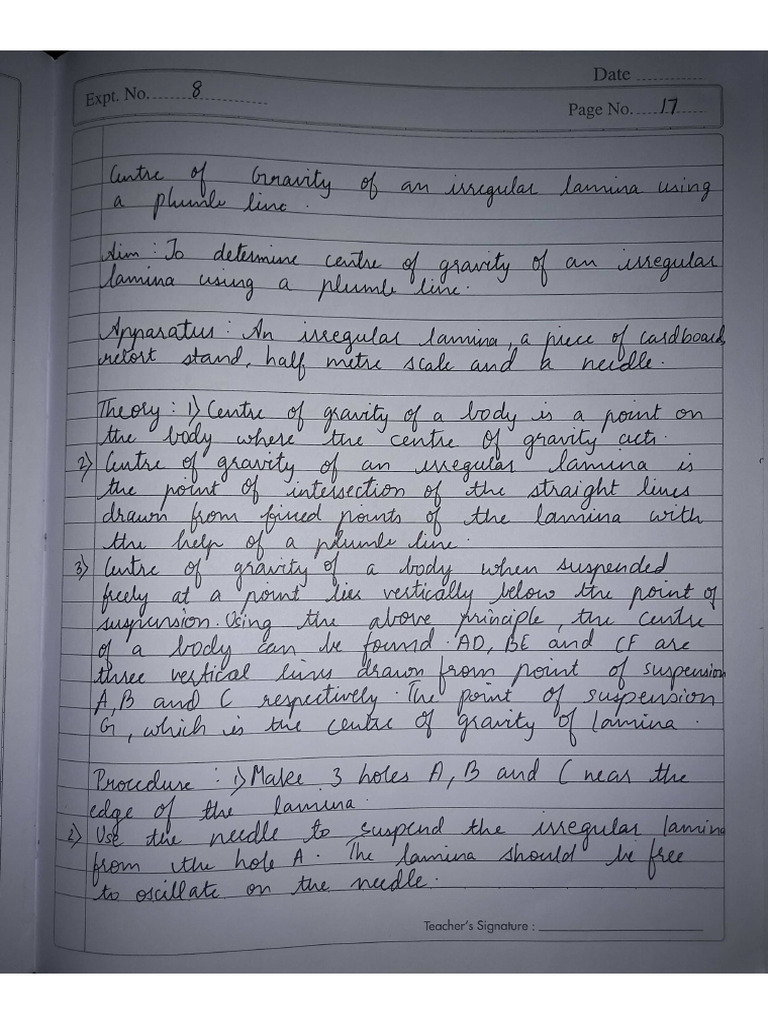 Date
Expt. No. 8
Page No. 17
Centre of Gravity of an irregular lamina using
a plumb line.
Aim : To determine centre of gravity of an irregular
lamina using a plumb line.
Apparatus : An irregular lamina, a piece of cardboard,
retort stand, half metre scale and a needle.
Theory : 1) Centre of gravity of a body is a point on
the body where the centre of gravity acts.
2) Centre of gravity of an irregular lamina is
the point of intersection of the straight lines
drawn from fixed points of the lamina with
the help of a plumb line.
3) Centre of gravity of a body when suspended
freely at a point lies vertically below the point of
suspension. Using the above principle, the centre
of a body can be found. AD, BE and CF are
three vertical lines drawn from point of suspension
A, B and C respectively. The point of suspension
G, which is the centre of gravity of lamina.
Procedure : 1) Make 3 holes A, B and C near the
edge of the lamina.
2) Use the needle to suspend the irregular lamina
from the hole A. The lamina should be free
to oscillate on the needle.
Teacher's Signature :